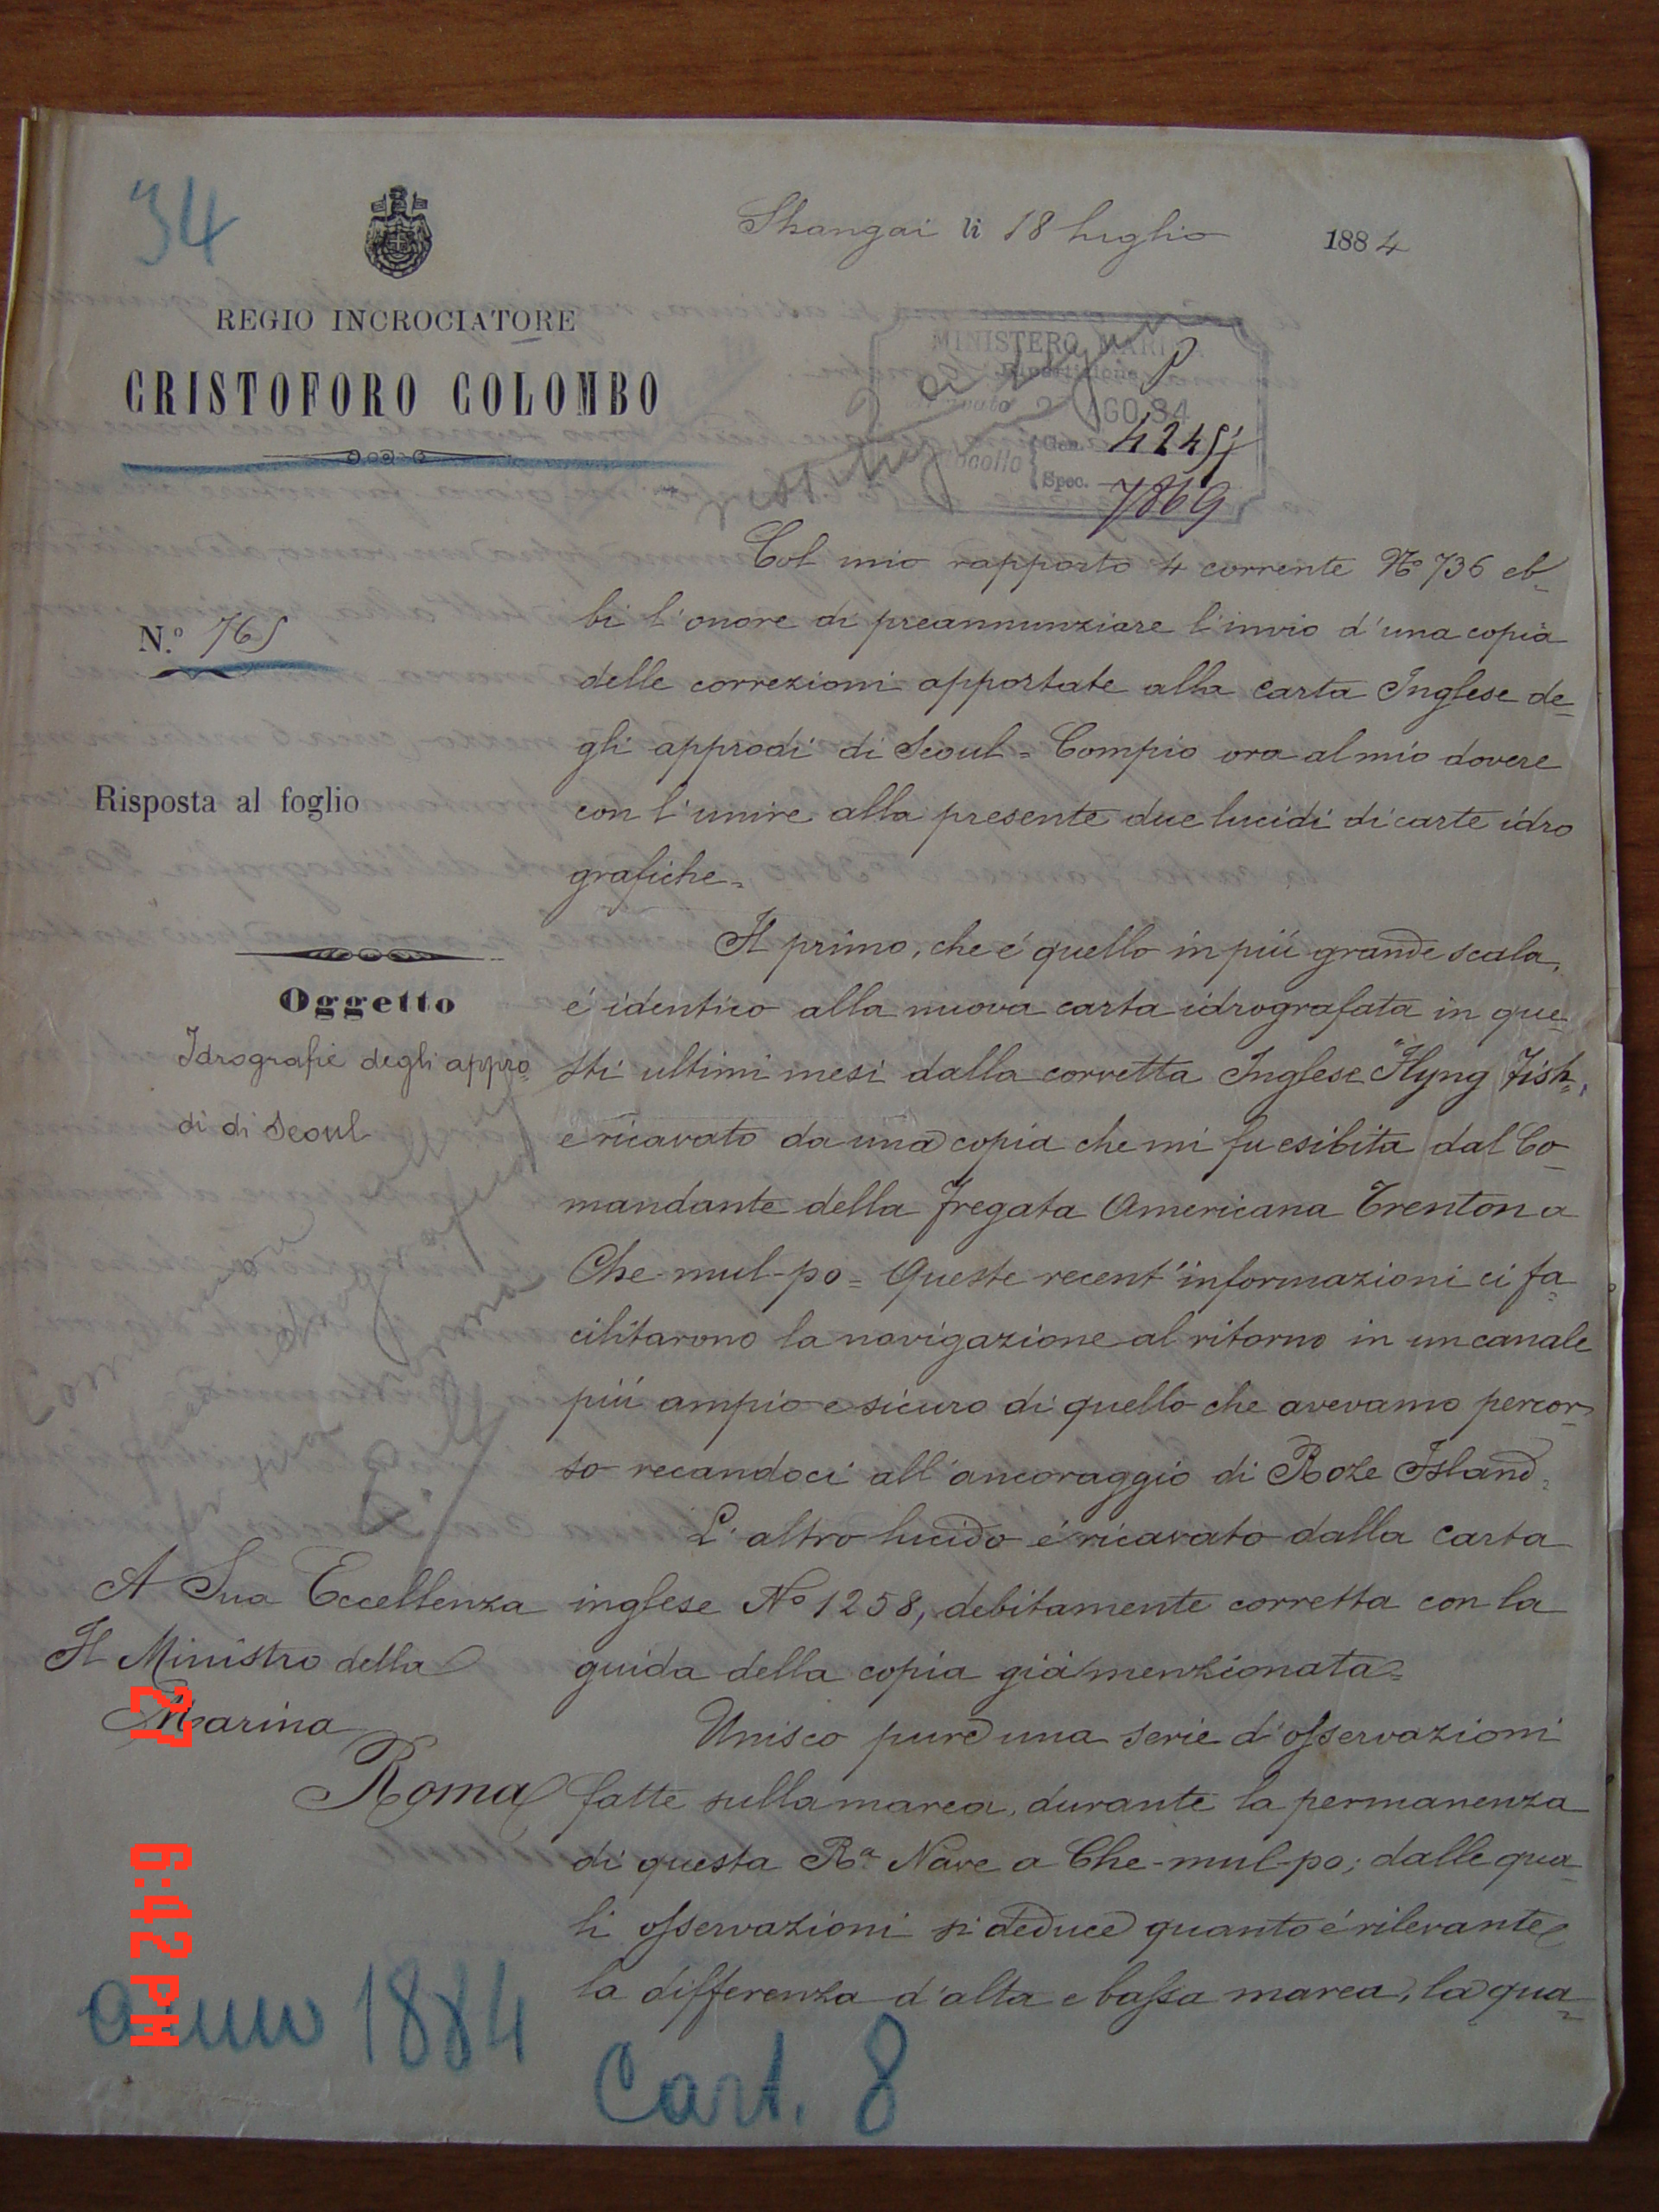 34
Shangai li 18 luglio 1884
REGIO INCROCIATORE
CRISTOFORO COLOMBO
MINISTERO MARINA
AGO 84
Gen. 4245
Spec. 7869
N.º 765
Risposta al foglio
Oggetto
Idrografie degli appro-
di di Seoul
A Sua Eccellenza
Il Ministro della
Marina
Roma
Col mio rapporto 4 corrente Nº 736 eb-
bi l'onore di preannunziare l'invio d'una copia
delle correzioni apportate alla carta Inglese de-
gli approdi di Seoul = Compio ora al mio dovere
con l'unire alla presente due lucidi di carte idro
grafiche =
Il primo, che é quello in piú grande scala,
é identico alla nuova carta idrografata in que-
sti ultimi mesi dalla corvetta Inglese "Flyng Fish",
e ricavato da una copia che mi fu esibita dal Co-
mandante della Fregata Americana Trenton a
Che-mul-po = Queste recent'informazioni ci fa-
cilitarono la navigazione al ritorno in un canale
piú ampio e sicuro di quello che avevamo percor-
so recandoci all'ancoraggio di Roze Island.
L'altro lucido é ricavato dalla carta
inglese Nº 1258, debitamente corretta con la
guida della copia giá menzionata =
Unisco pure una serie d'osservazioni
fatte sulla marea, durante la permanenza
di questa Rª Nave a Che-mul-po; dalle qua-
li osservazioni si deduce quanto é rilevante
la differenza d'alta e bassa marea, la qua-
anno 1884
Cart. 8
27 6:42 PM